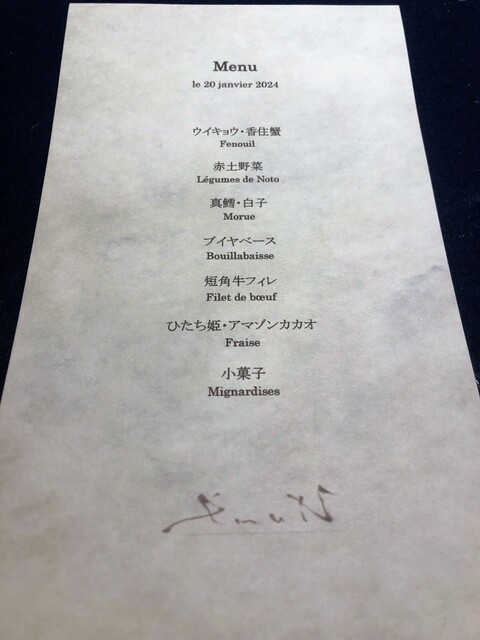 Menu
le 20 janvier 2024
ウイキョウ・香住蟹
Fenouil
赤土野菜
Légumes de Noto
真鱈・白子
Morue
ブイヤベース
Bouillabaisse
短角牛フィレ
Filet de bœuf
ひたち姫・アマゾンカカオ
Fraise
小菓子
Mignardises